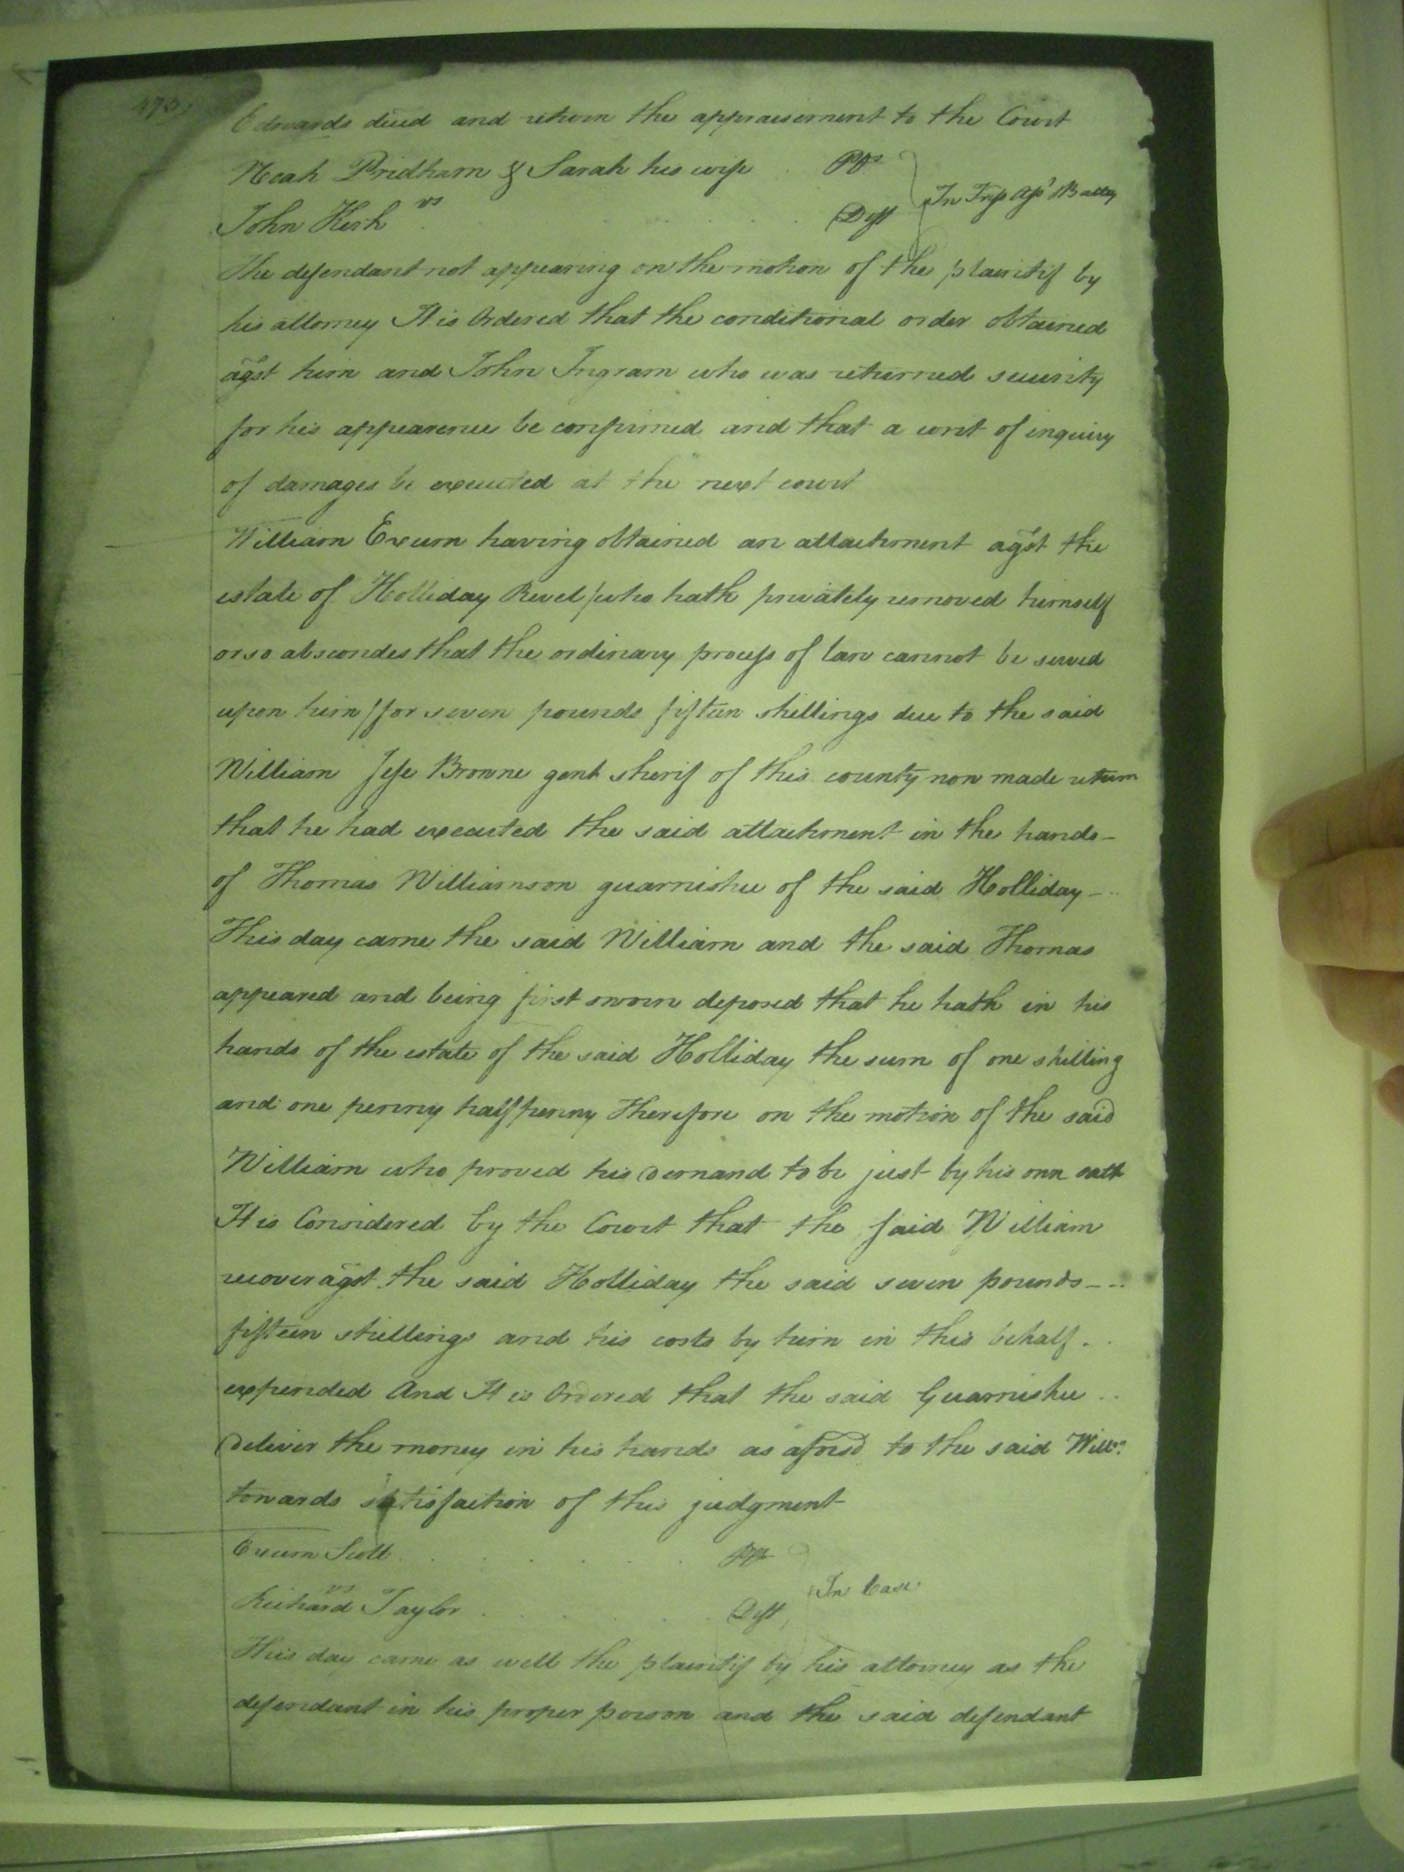 Edwards decd and return the appraisement to the Court
Noah Pridham & Sarah his wife Plfs
vs In Tresp aſst & Battry
John Kerk Deft
The defendant not appearing on the motion of the plaintif by
his attorney It is Ordered that the conditional order obtained
agst him and John Ingram who was returned security
for his appearence be confirmed and that a writ of inquiry
of damages be executed at the next court
William Exum having obtained an attachment agst the
estate of Holliday Revel /who hath privately removed himself
or so abscondes that the ordinary proceſs of law cannot be served
upon him/ for seven pounds fifteen shillings due to the said
William Jeſse Browne gent sherif of this county now made return
that he had executed the said attachment in the hands
of Thomas Williamson guarnishee of the said Holliday
This day came the said William and the said Thomas
appeared and being first sworn deposed that he hath in his
hands of the estate of the said Holliday the sum of one shilling
and one penny halfpenny Therefore on the motion of the said
William who proved his demand to be just by his own oath
It is Considered by the Court that the said William
recover agst the said Holliday the said seven pounds
fifteen shillings and his costs by him in this behalf
expended And It is Ordered that the said Guarnishee
deliver the money in his hands as aforsd to the said Willm
towards satisfaction of this judgment
Exum Scott Plf
vs In Case
Richard Taylor Deft
This day came as well the plaintif by his attorney as the
defendant in his proper person and the said defendant